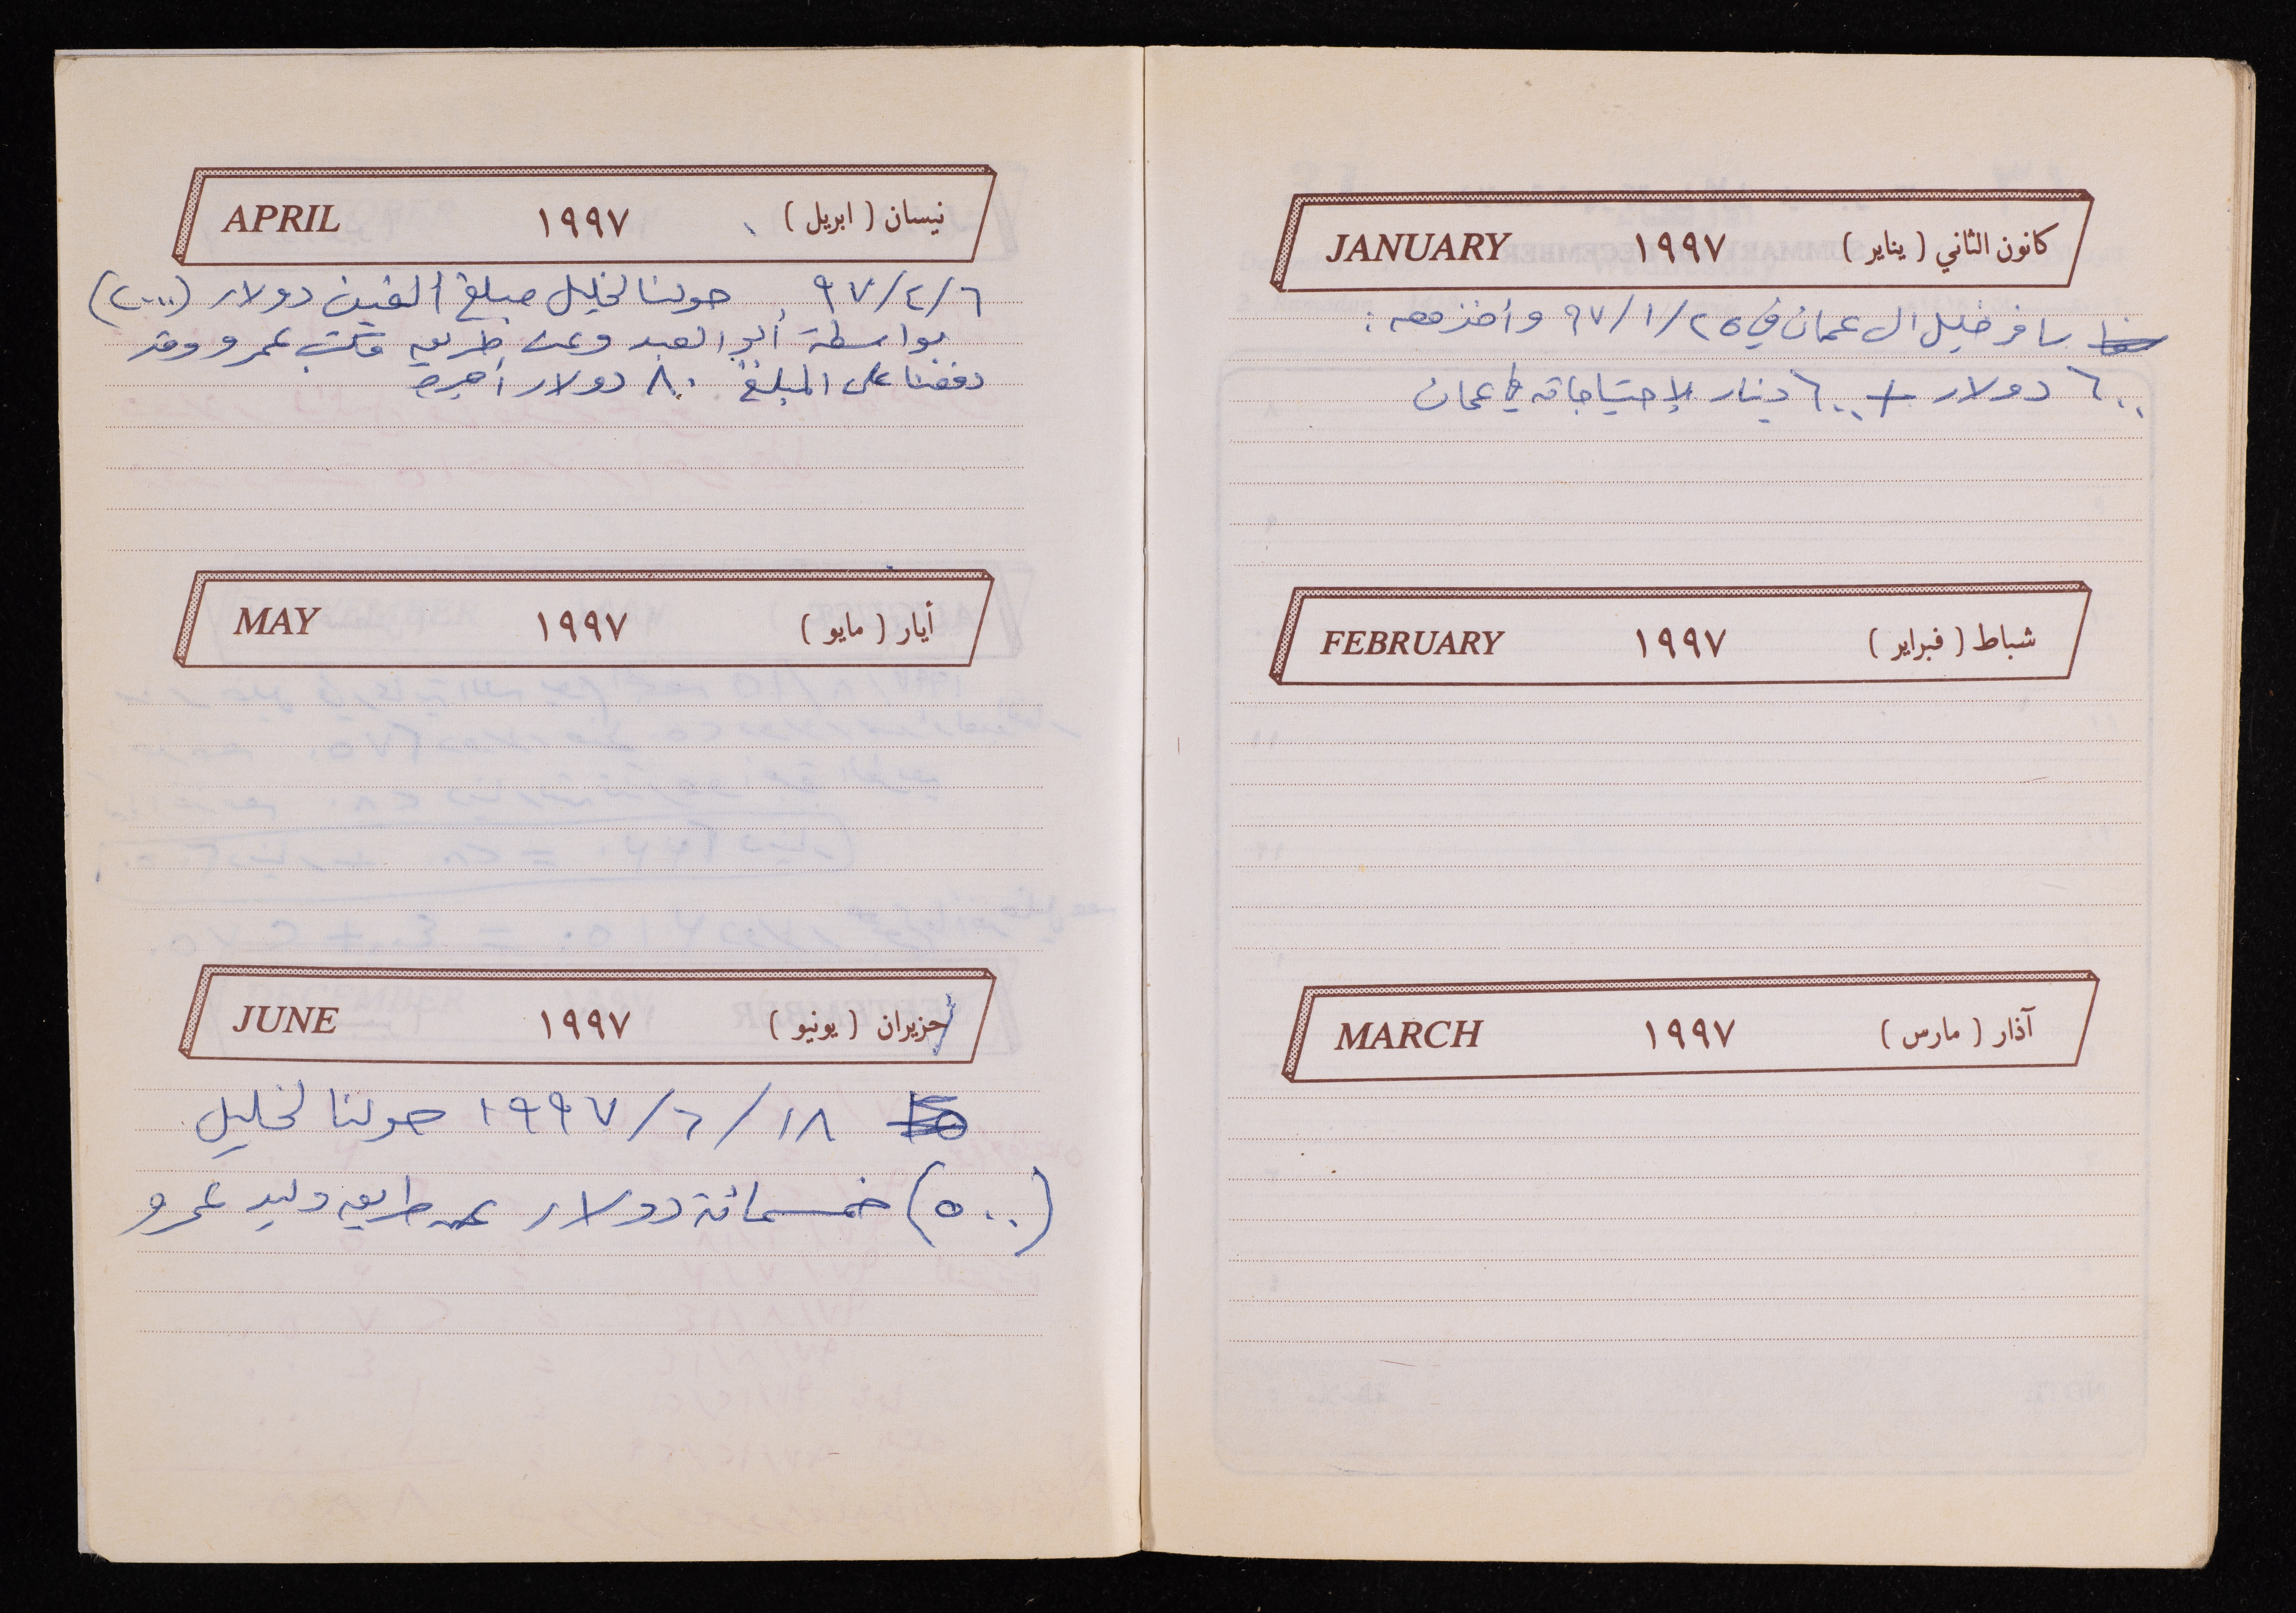 كانون الثاني ( يناير ) ١٩٩٧ JANUARY
سافر خليل الى عمان في ٩٧/١/٢٥ وأخذ معه :
٦٠٠ دولار + ٦٠٠ دينار لإحتياجاته في عمان
شباط ( فبراير ) ١٩٩٧ FEBRUARY
آذار ( مارس ) ١٩٩٧ MARCH
نيسان ( ابريل ) ١٩٩٧ APRIL
٩٧/٤/٦ حولنا لخليل مبلغ ألفين دولار (٢٠٠٠)
بواسطة أبو العبد وعن طريق مكتب عمرو وقد
دفعنا على المبلغ ٨٠ دولار أجرة
أيار ( مايو ) ١٩٩٧ MAY
حزيران ( يونيو ) ١٩٩٧ JUNE
١٩٩٧/٦/١٨ حولنا لخليل
(٥٠٠) خمسمائة دولار عن طريق وليد عمرو